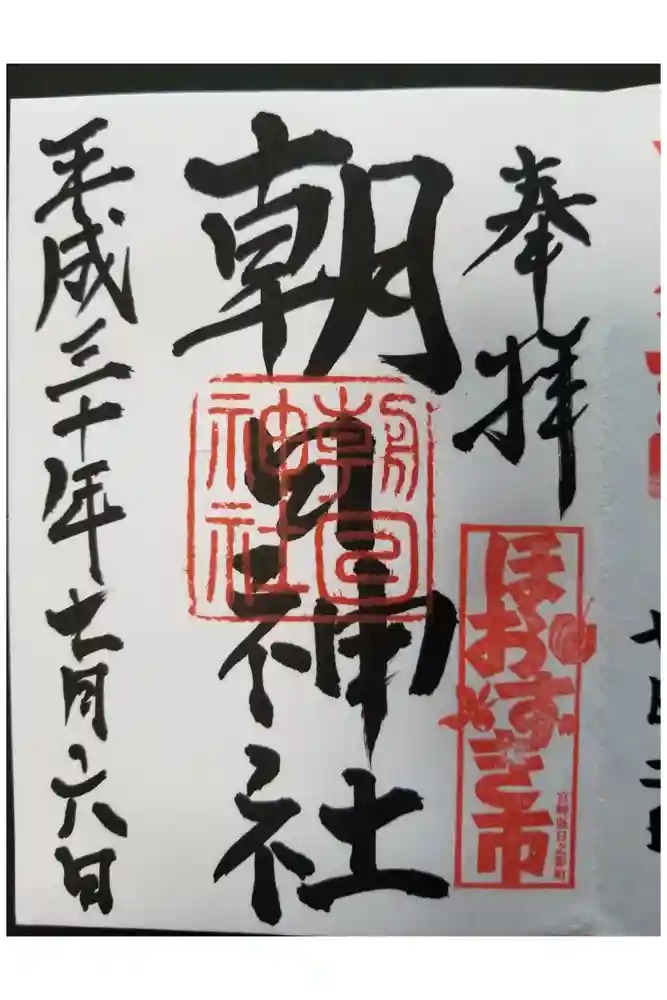 奉拝
ほおずき市
朝日神社
朝日神社
平成三十年七月六日